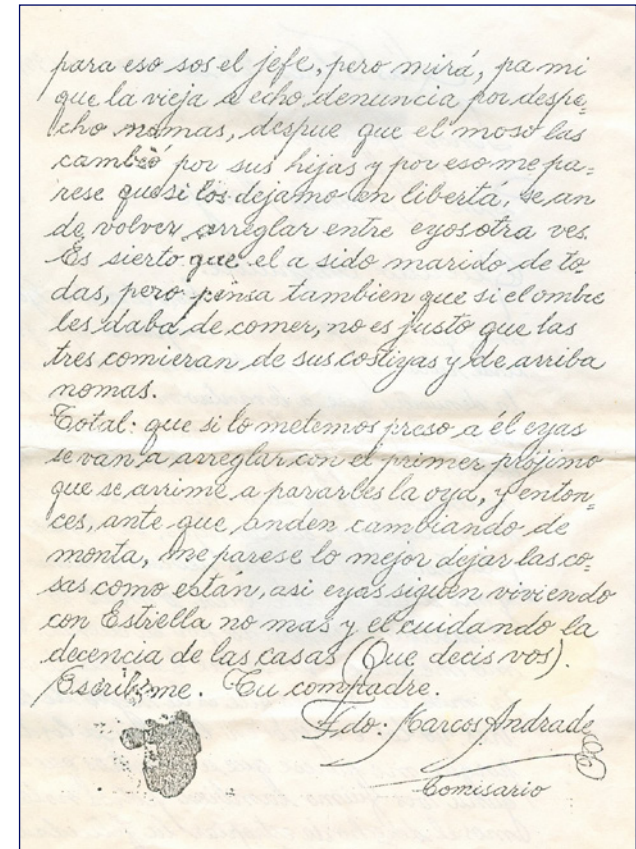 para eso sos el jefe, pero mirá, pa mi
que la vieja a echo denuncia por despe-
cho nomas, despue que el moso las
cambió por sus hijas y por eso me pa-
rese que si los dejamo en libertá, se an
de volver arreglar entre eyos otra ves.
Es sierto que el a sido marido de to-
das, pero pensa tambien que si el ombre
les daba de comer, no es justo que las
tres comieran de sus costiyas y de arriba
nomas.
Total: que si lo metemos preso a él eyas
se van a arreglar con el primer prójimo
que se arrime a pararles la oya, y enton-
ces, ante que anden cambiando de
monta, me parese lo mejor dejar las co-
sas como están, asi eyas siguen viviendo
con Estrella no mas y el cuidando la
decencia de las casas (Que decis vos).
Escribime. Tu compadre.
Fdo: Marcos Andrade
Comisario